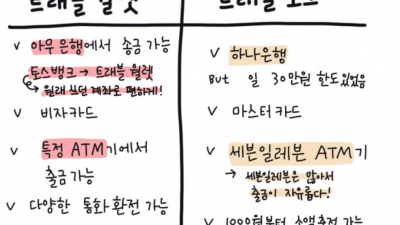 트래블 월렛
∨ 아무 은행에서 송금 가능
토스뱅크 → 트래블 월렛
→ 원래 쓰던 계좌로 편하게!
∨ 비자카드
∨ 특정 ATM기에서
출금 가능
∨ 다양한 통화 환전 가능
∨ 하나은행
But 일 30만원 한도있었음
∨ 마스터카드
∨ 세븐일레븐 ATM기
→ 세븐일레븐은 많아서
출금이 자유롭다!